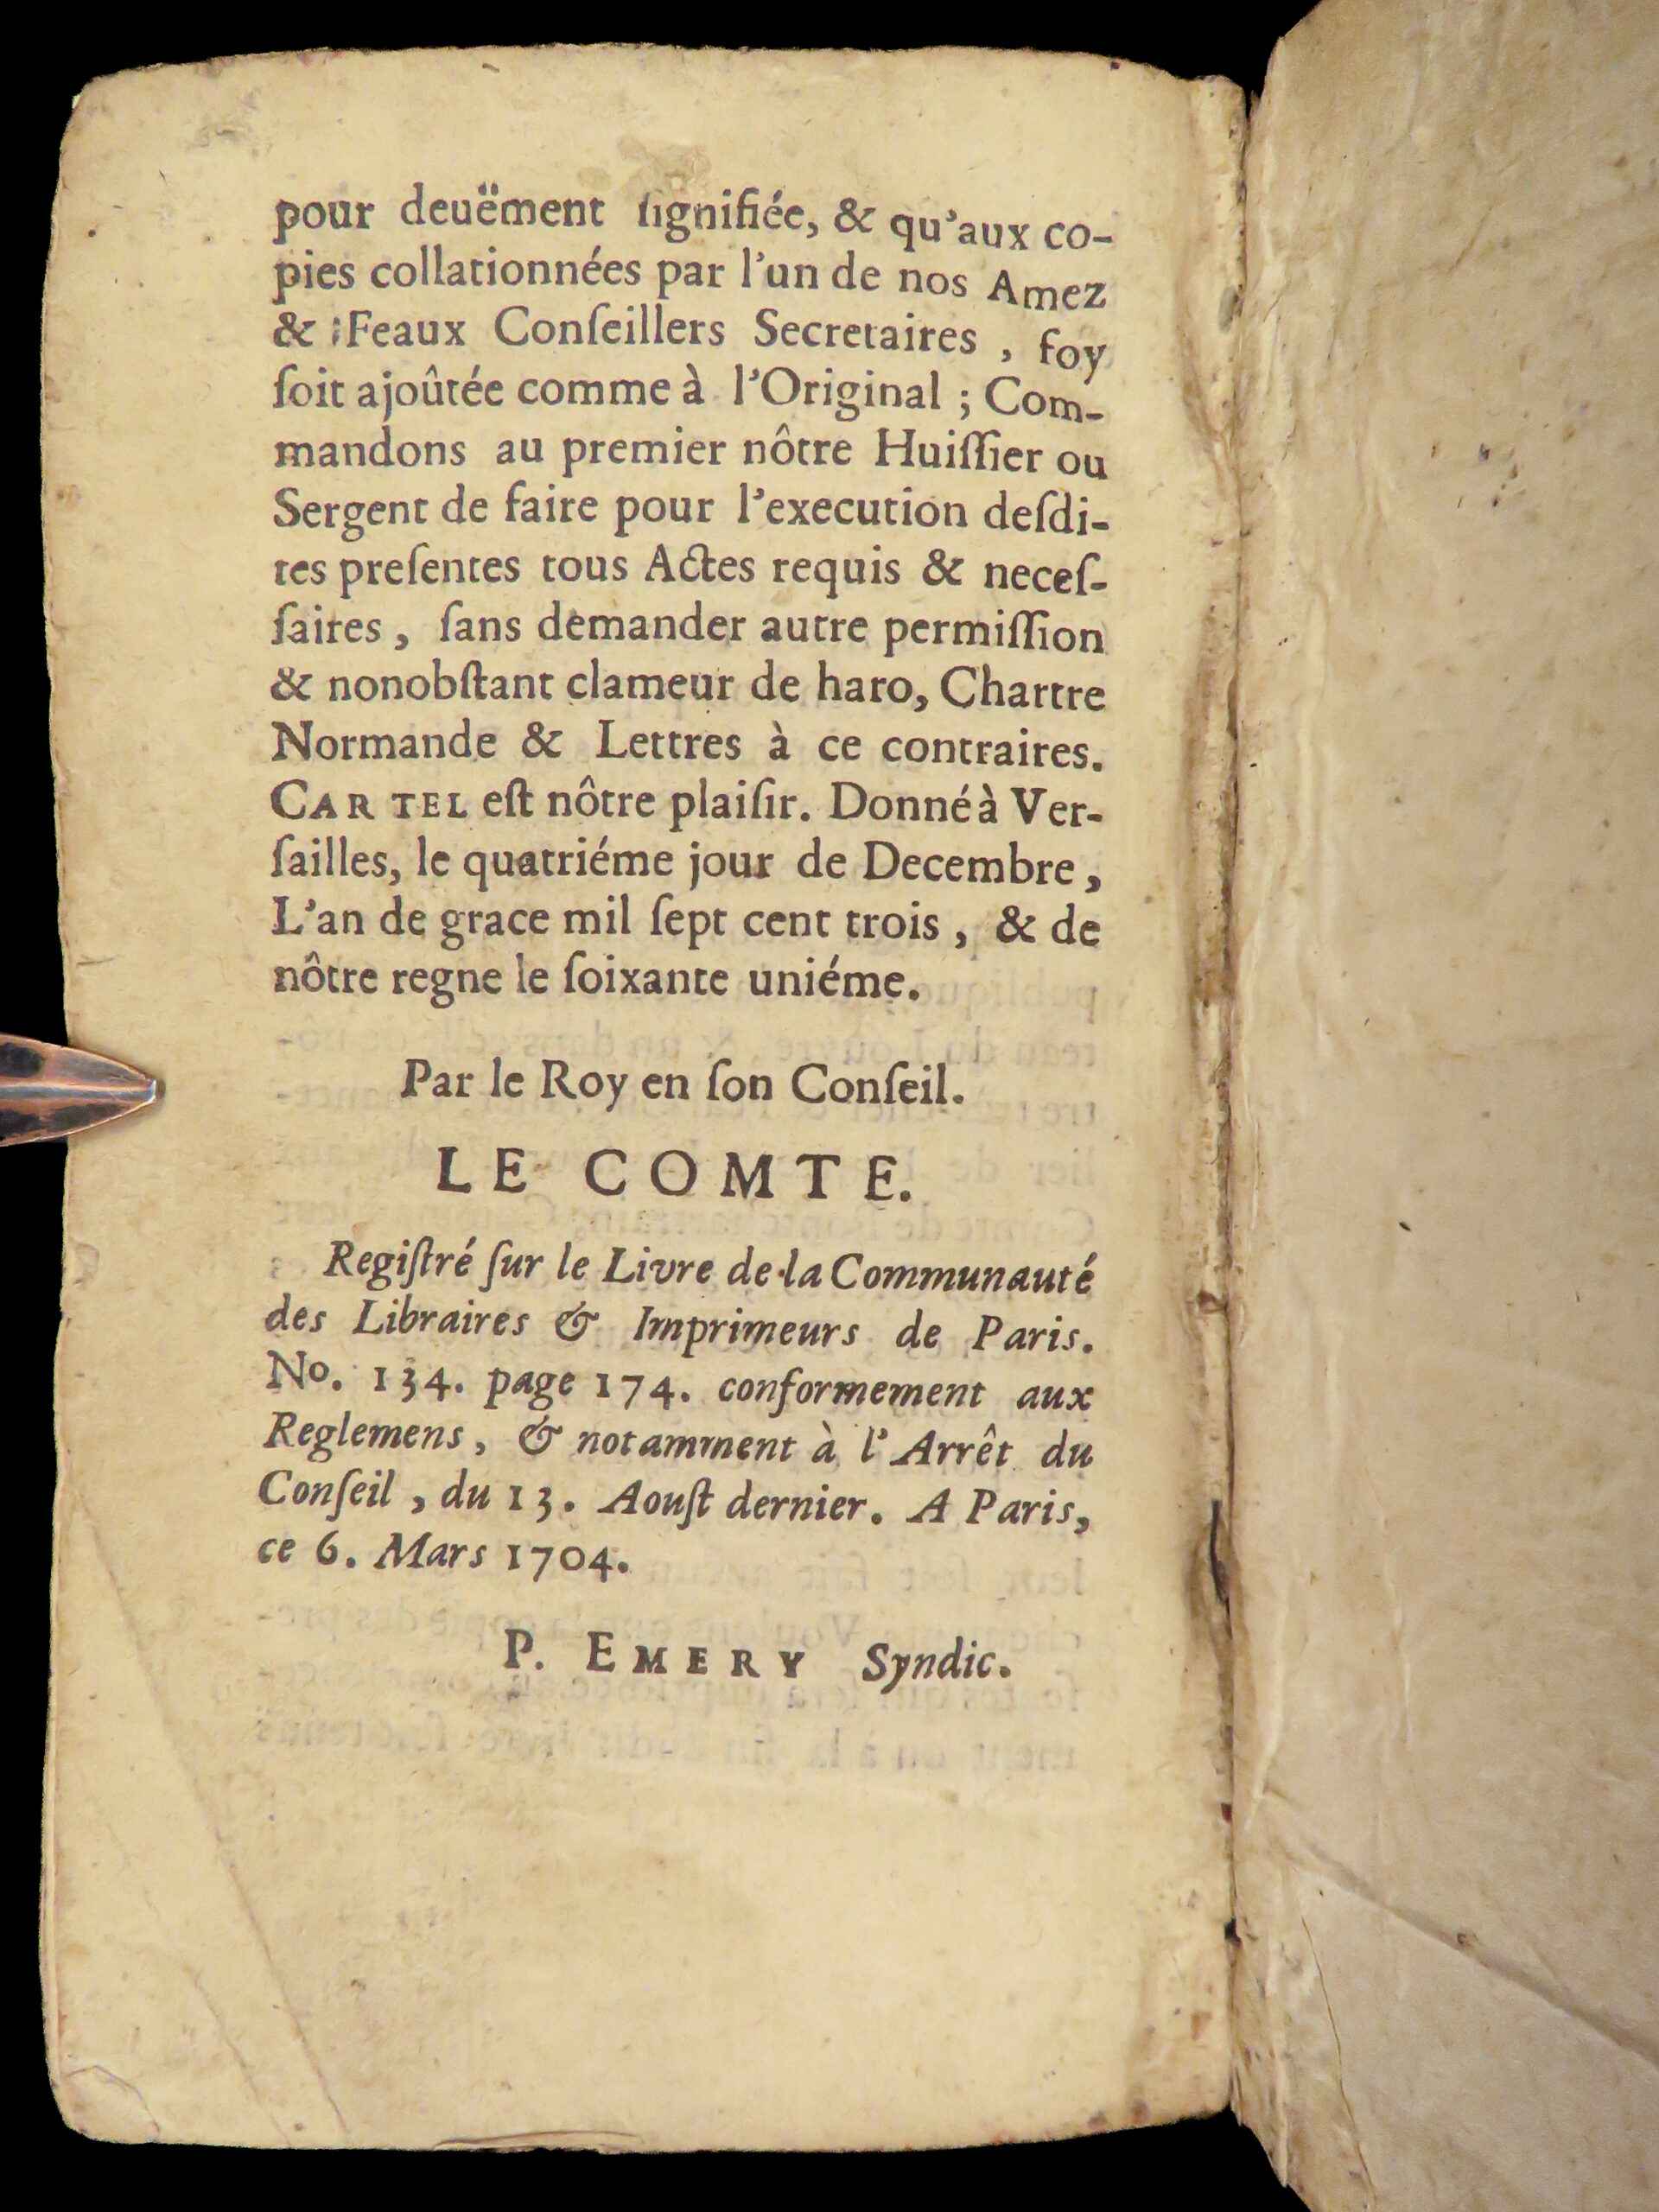 pour deuëment ſignifiée, & qu'aux co-
pies collationnées par l'un de nos Amez
& Feaux Conſeillers Secretaires , foy
ſoit ajoûtée comme à l'Original ; Com-
mandons au premier nôtre Huiſſier ou
Sergent de faire pour l'execution deſdi-
tes preſentes tous Actes requis & neceſ-
ſaires , ſans demander autre permiſſion
& nonobſtant clameur de haro, Chartre
Normande & Lettres à ce contraires.
CAR TEL eſt nôtre plaiſir. Donné à Ver-
ſailles, le quatriéme jour de Decembre ,
L'an de grace mil ſept cent trois , & de
nôtre regne le ſoixante uniéme.
Par le Roy en ſon Conſeil.
LE COMTE.
Regiſtré ſur le Livre de la Communauté
des Libraires & Imprimeurs de Paris.
No. 134. page 174. conformement aux
Reglemens , & notamment à l'Arrêt du
Conſeil , du 13. Aouſt dernier. A Paris,
ce 6. Mars 1704.
P. EMERY Syndic.